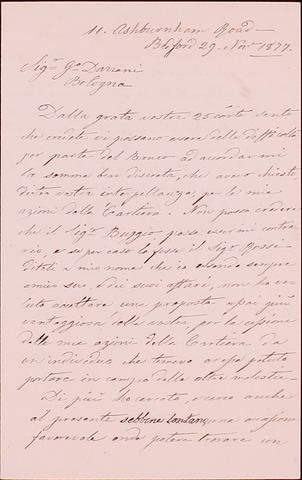 11. Ashburnham Road
Bedford 29. Nov.r 1877.
Sig.r G.o Dazzani
Bologna
Dalla grata vostra 25 corte sento
che credete vi possano essere delle difficoltà
per parte del Banco ad accordarmi
la somma ben discreta, che avevo chiesto,
dietro vostra interpellanza, per le mie
azioni della Cartiera. Non posso credere
che il Sig.r Buggio possa essermi contra
rio e se per caso lo fosse il Sig.r Rossi
diteli a mio nome che io essendo sempre
amico suo e dei suoi affari, non ho vo
luto accettare una proposta assai più
vantaggiosa della vostra, per la cessione
delle mie azioni della Cartiera da
un individuo che troverò avesse potuto
portare in campo delle altre molestie.
Di più ho cercato, e cerco anche
al presente sebbene lontano una occasione
favorevole onde potere trovare con